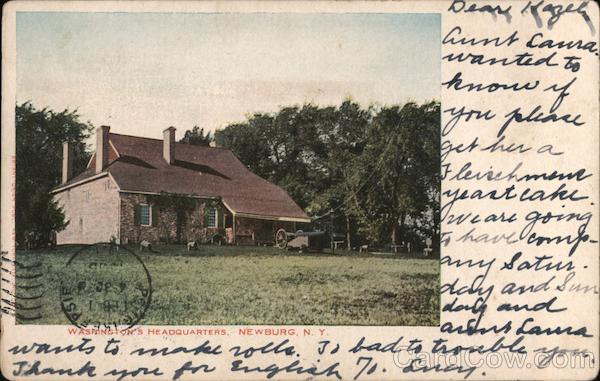 Dear Hazel
Aunt Laura
wanted to
know if
you please
get her a
Fleischmans
yeast cake.
We are going
to have comp-
any Satur-
day and Sun
day and
aunt Laura
WASHINGTON'S HEADQUARTERS, NEWBURG, N. Y.
wants to make rolls. To bad to trouble you
Thank you for English 70. Lucy.
CardCow.com